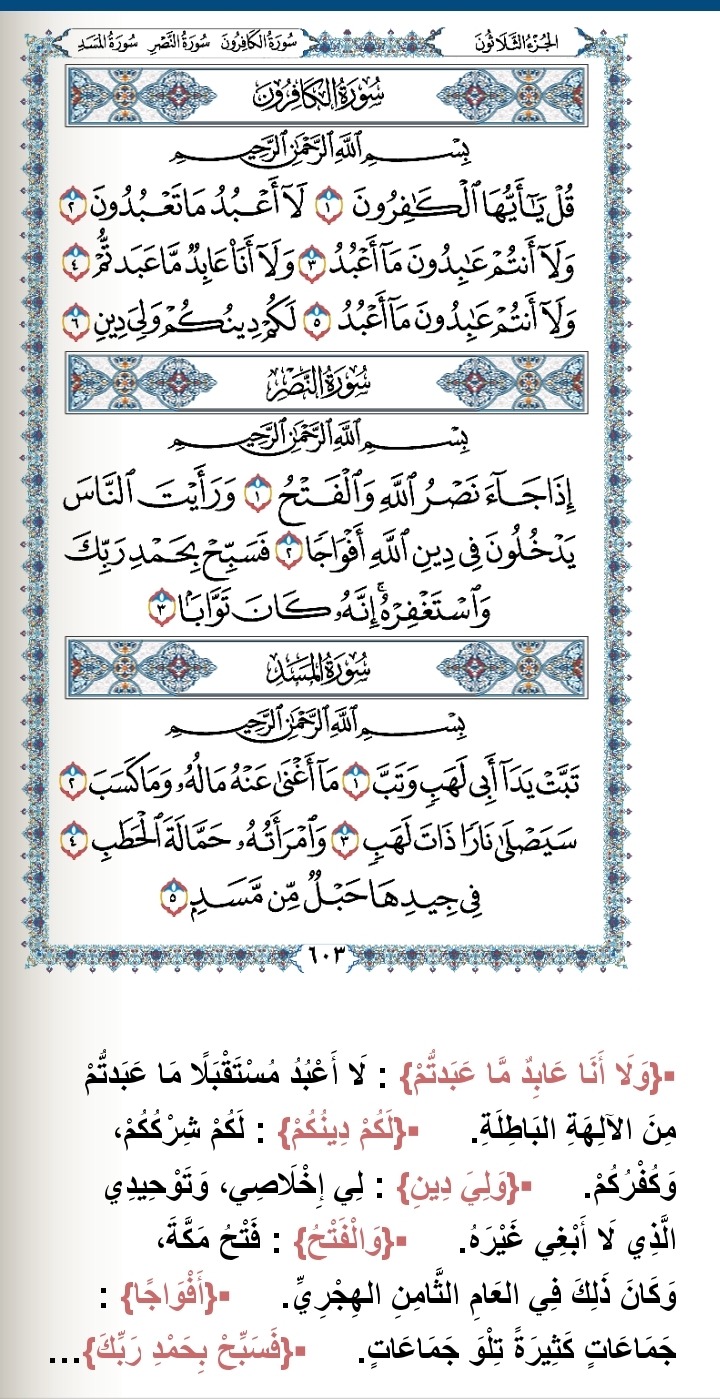 الجُزْءُ الثَّلَاثُونَ سُورَةُ الكَافِرُونَ سُورَةُ النَّصْرِ سُورَةُ المَسَدِ
سُورَةُ الكَافِرُونَ
بِسْمِ ٱللَّهِ ٱلرَّحْمَٰنِ ٱلرَّحِيمِ
قُلْ يَٰٓأَيُّهَا ٱلْكَٰفِرُونَ ١ لَآ أَعْبُدُ مَا تَعْبُدُونَ ٢
وَلَآ أَنتُمْ عَٰبِدُونَ مَآ أَعْبُدُ ٣ وَلَآ أَنَا۠ عَابِدٌ مَّا عَبَدتُّمْ ٤
وَلَآ أَنتُمْ عَٰبِدُونَ مَآ أَعْبُدُ ٥ لَكُمْ دِينُكُمْ وَلِىَ دِينِ ٦
سُورَةُ النَّصْرِ
بِسْمِ ٱللَّهِ ٱلرَّحْمَٰنِ ٱلرَّحِيمِ
إِذَا جَآءَ نَصْرُ ٱللَّهِ وَٱلْفَتْحُ ١ وَرَأَيْتَ ٱلنَّاسَ
يَدْخُلُونَ فِى دِينِ ٱللَّهِ أَفْوَاجًا ٢ فَسَبِّحْ بِحَمْدِ رَبِّكَ
وَٱسْتَغْفِرْهُ ۚ إِنَّهُۥ كَانَ تَوَّابًۢا ٣
سُورَةُ المَسَدِ
بِسْمِ ٱللَّهِ ٱلرَّحْمَٰنِ ٱلرَّحِيمِ
تَبَّتْ يَدَآ أَبِى لَهَبٍ وَتَبَّ ١ مَآ أَغْنَىٰ عَنْهُ مَالُهُۥ وَمَا كَسَبَ ٢
سَيَصْلَىٰ نَارًا ذَاتَ لَهَبٍ ٣ وَٱمْرَأَتُهُۥ حَمَّالَةَ ٱلْحَطَبِ ٤
فِى جِيدِهَا حَبْلٌ مِّن مَّسَدٍۭ ٥
٦٠٣
▪{وَلَا أَنَا عَابِدٌ مَّا عَبَدتُّمْ} : لَا أَعْبُدُ مُسْتَقْبَلًا مَا عَبَدتُّمْ
مِنَ الآلِهَةِ البَاطِلَةِ. ▪{لَكُمْ دِينُكُمْ} : لَكُمْ شِرْكُكُمْ،
وَكُفْرُكُمْ. ▪{وَلِيَ دِينِ} : لِي إِخْلَاصِي، وَتَوْحِيدِي
الَّذِي لَا أَبْغِي غَيْرَهُ. ▪{وَالْفَتْحُ} : فَتْحُ مَكَّةَ،
وَكَانَ ذَلِكَ فِي العَامِ الثَّامِنِ الهِجْرِيِّ. ▪{أَفْوَاجًا} :
جَمَاعَاتٍ كَثِيرَةً تِلْوَ جَمَاعَاتٍ. ▪{فَسَبِّحْ بِحَمْدِ رَبِّكَ}...